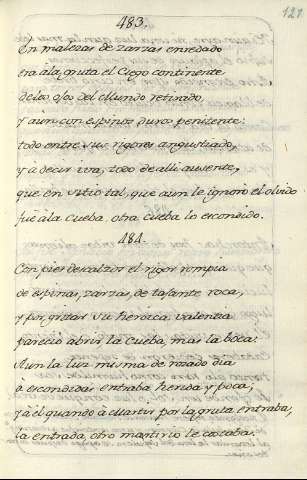 483.
121
En malezas de zarzas enredado
era àla gruta el Ciego continente
de los ojos del Mundo retirado,
y aun con espinos duros penitente:
todo entre sus rigores angustiado,
y à decir iva, todo de alli ausente,
que en sitio tal, que aun le ignorò el olvido
fuè àla Cueba otra cueba lo escondido.
484.
Con pies descalzos el rigor rompia
de espinas, zarzas, de tajante roca,
y por gritar su heroica valentia
pareciò abrir la Cueba, mas la boca:
Aun la luz misma de rosado dia
à escondidas entraba herida y poca;
y à èl quando à el Martir por la gruta entraba,
la entrada, otro martirio le